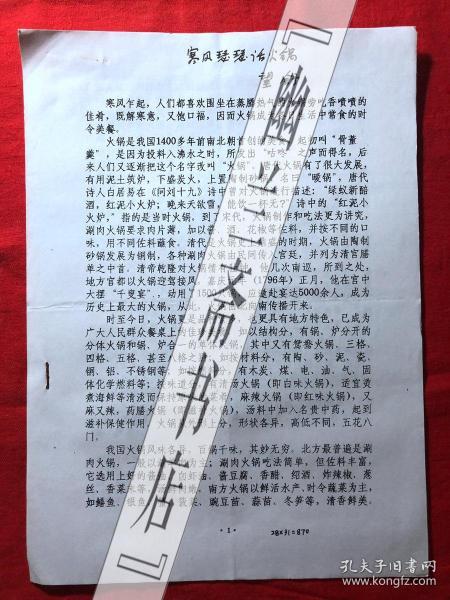 寒风瑟瑟话火锅
寒风乍起，人们都喜欢围坐在蒸腾热气的 旁吃香喷喷的
佳肴，既解寒意，又饱口福，因而火锅成 生活中常食的时
令美餐。
火锅是我国1400多年前南北朝首创的 起初叫“骨董
羹”，是因为投料入沸水之时，所发出“咕咚”之声而得名，后
来人们又逐渐把这个名字改叫“火锅”。 火锅有了很大发展，
有用泥土筑炉，下盛炭火，上置陶制 名曰“暖锅”。唐代
诗人白居易在《问刘十九》诗中曾对火 进行描述：“绿蚁新醅
酒，红泥小火炉；晚来天欲雪，能饮一杯无？”诗中的“红泥小
火炉”，指的是当时火锅。到了宋代，火锅制作和吃法更为讲究，
涮肉火锅要求肉片薄，加以酱、酒、花椒等佐料，并按不同的口
味，用不同佐料蘸食。清代是火锅史上 盛的时期，火锅由陶制
砂锅发展为铜制，各种涮肉火锅由民间传入宫廷，并列为清宫膳
单之中首。清帝乾隆对火锅情有 他几次南巡，所到之处，
地方官都以火锅迎驾接风。嘉庆 年（1796年）正月，他在宫中
大摆“千叟宴”，动用了150 应邀赴宴达5000余人，成为
历史上最大的火锅，从此， 南传播开来。
时至今日，火锅 是 更具有地方特色，已成为
广大人民群众餐桌上的佳 如以结构分，有锅、炉分开的
分体火锅和锅、炉合一的单体火锅，其中又有鸳鸯火锅、三格、
四格、五格、甚至八格之 如按材料分，有陶、砂、瓷、
钢、铝、不锈钢等。如按 分，有木炭、煤、电、油、气、固
体化学燃料等；按味道分，有清汤火锅（即白味火锅），适宜烫
煮海鲜等清淡而保持原 菜肴，麻辣火锅（即红味火锅），又
麻又辣，药膳火锅（即滋补火锅），汤料中加入名贵中药，起到
滋补保健作用。火锅 上分，形状各异，高低不同，五花八
门。
我国火锅风味各异，百锅千味，其妙无穷。北方最普遍是涮
肉火锅，一般以 为主；涮肉火锅吃法简单，但佐料丰富，
它选用上好的酱油、白虾油、酱豆腐、香醋、绍酒、炸辣椒、葱
丝、香菜末等， 南方火锅以鲜活水产、时令蔬菜为主，
如鳝鱼、银鱼、 菠菜、豌豆苗、蒜苗、冬笋等，清香鲜美。
·1·
28×31=870
『幽兰文斋书店』
孔夫子旧书网
www.kongfz.com